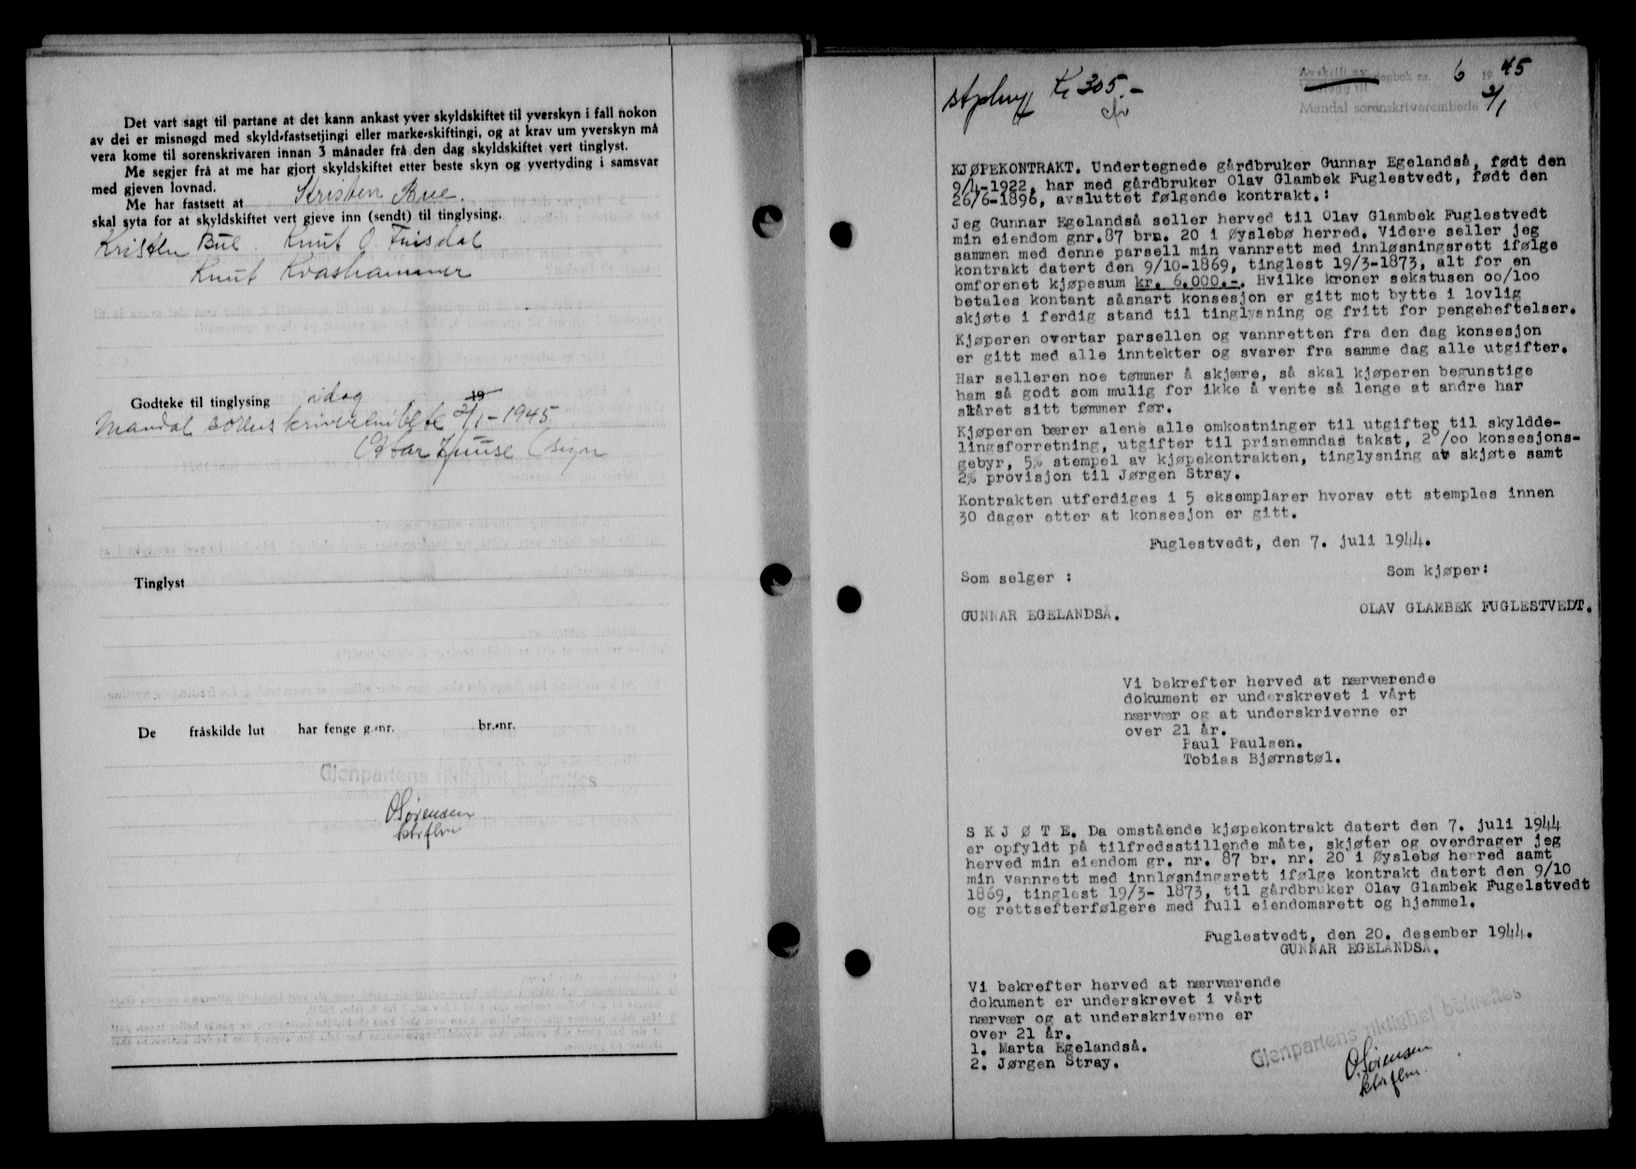 Det vart sagt til partane at det kann ankast yver skyldskiftet til yverskyn i fall nokon
av dei er misnøgd med skyld-fastsetjingi eller marke-skiftingi, og at krav um yverskyn må
vera kome til sorenskrivaren innan 3 månader frå den dag skyldskiftet vert tinglyst.
Me segjer frå at me har gjort skyldskiftet etter beste skyn og yvertyding i samsvar
med gjeven lovnad.
Me har fastsett at Kristen Bue.
skal syta for at skyldskiftet vert gjeve inn (sendt) til tinglysing.
Kristen Bue. Knut O. Finsdal
Knut Kvashammer
Godteke til tinglysing idag 19
Mandal sorenskriverembete 2/1-1945
(sign
Tinglyst
De fråskilde lut har fenge g.-nr. br.-nr.
Gjenpartens riktighet bekreftes
O Sørensen
ktrflm
Kr 305.-
Avskrift av dagbok nr. 6 1945
Mandal sorenskriverembede 2/1
KJØPEKONTRAKT. Undertegnede gårdbruker Gunnar Egelandså, født den
9/4-1922, har med gårdbruker Olav Glambek Fuglestvedt, født den
26/6-1896, avsluttet følgende kontrakt.:
Jeg Gunnar Egelandså seller herved til Olav Glambek Fuglestvedt
min eiendom gnr.87 brn. 20 i Øyslebø herred. Videre seller jeg
sammen med denne parsell min vannrett med innløsningsrett ifølge
kontrakt datert den 9/10-1869, tinglest 19/3-1873, alt for en
omforenet kjøpesum kr. 6.000.-. Hvilke kroner sekstusen oo/loo
betales kontant såsnart konsesjon er gitt mot bytte i lovlig
skjøte i ferdig stand til tinglysning og fritt for pengeheftelser.
Kjøperen overtar parsellen og vannretten fra den dag konsesjon
er gitt med alle inntekter og svarer fra samme dag alle utgifter.
Har selleren noe tømmer å skjære, så skal kjøperen begunstige
ham så godt som mulig for ikke å vente så lenge at andre har
skåret sitt tømmer før.
Kjøperen bærer alene alle omkostninger til utgifter til skyldde-
lingsforretning, utgifter til prisnemndas takst, 2 o/oo konsesjons-
gebyr, 5% stempel av kjøpekontrakten, tinglysning av skjøte samt
2% provisjon til Jørgen Stray.
Kontrakten utferdiges i 5 eksemplarer hvorav ett stemples innen
30 dager etter at konsesjon er gitt.
Fuglestvedt, den 7. juli 1944.
Som selger : Som kjøper:
GUNNAR EGELANDSÅ. OLAV GLAMBEK FUGLESTVEDT.
Vi bekrefter herved at nærværende
dokument er underskrevet i vårt
nærvær og at underskriverne er
over 21 år.
Paul Paulsen.
Tobias Bjørnstøl.
S K J Ø T E. Da omstående kjøpekontrakt datert den 7. juli 1944
er opfyldt på tilfredsstillende måte, skjøter og overdrager jeg
herved min eiendom gr. nr. 87 br. nr. 20 i Øyslebø herred samt
min vannrett med innløsningsrett ifølge kontrakt datert den 9/10
1869, tinglest 19/3- 1873, til gårdbruker Olav Glambek Fugelstvedt
og rettsefterfølgere med full eiendomsrett og hjemmel.
Fuglestvedt, den 20. desember 1944.
GUNNAR EGELANDSÅ.
Vi bekrefter herved at nærværende
dokument er underskrevet i vårt
nærvær og at underskriverne er
over 21 år.
1. Marta Egelandså.
2. Jørgen Stray.
Gjenpartens riktighet bekreftes
O. Sørensen
ktrflm.